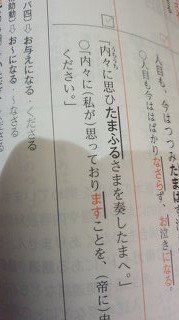 人目も、今はつつみたまは
○人目も、今ははばかりなさらず、お泣きになる。
「内々に思ひたまふるさまを奏したまへ。」
○「内々に(私が)思っておりますことを、(帝に)
ください。」
ハ四) ⇩ お与えになる・くださる
助動) ⇩ お〜になる・〜なさる